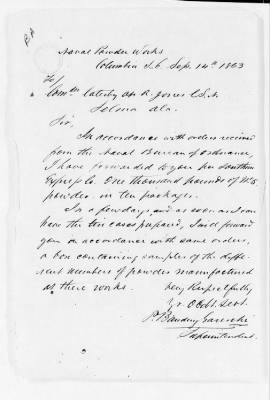 Naval Powder Works
Columbia S.C. Sep. 14th 1863
To/
Comdr Catesby Ap R. Jones C.S.N.
Selma Ala.
Sir,
In accordance with orders received
from the Naval Bureau of Ordnance
I have forwarded to you per Southern
Express Co. One thousand pounds of No 5
powder, in ten packages.
In a few days, and as soon as I can
have the tin cases prepared, I will forward
you in accordance with same orders,
a box containing samples of the diffe-
rent numbers of powder manufactured
at these works.
Very Respectfully
Yr Obdt. Servt.
P. Baudery Garesché
Superintendent